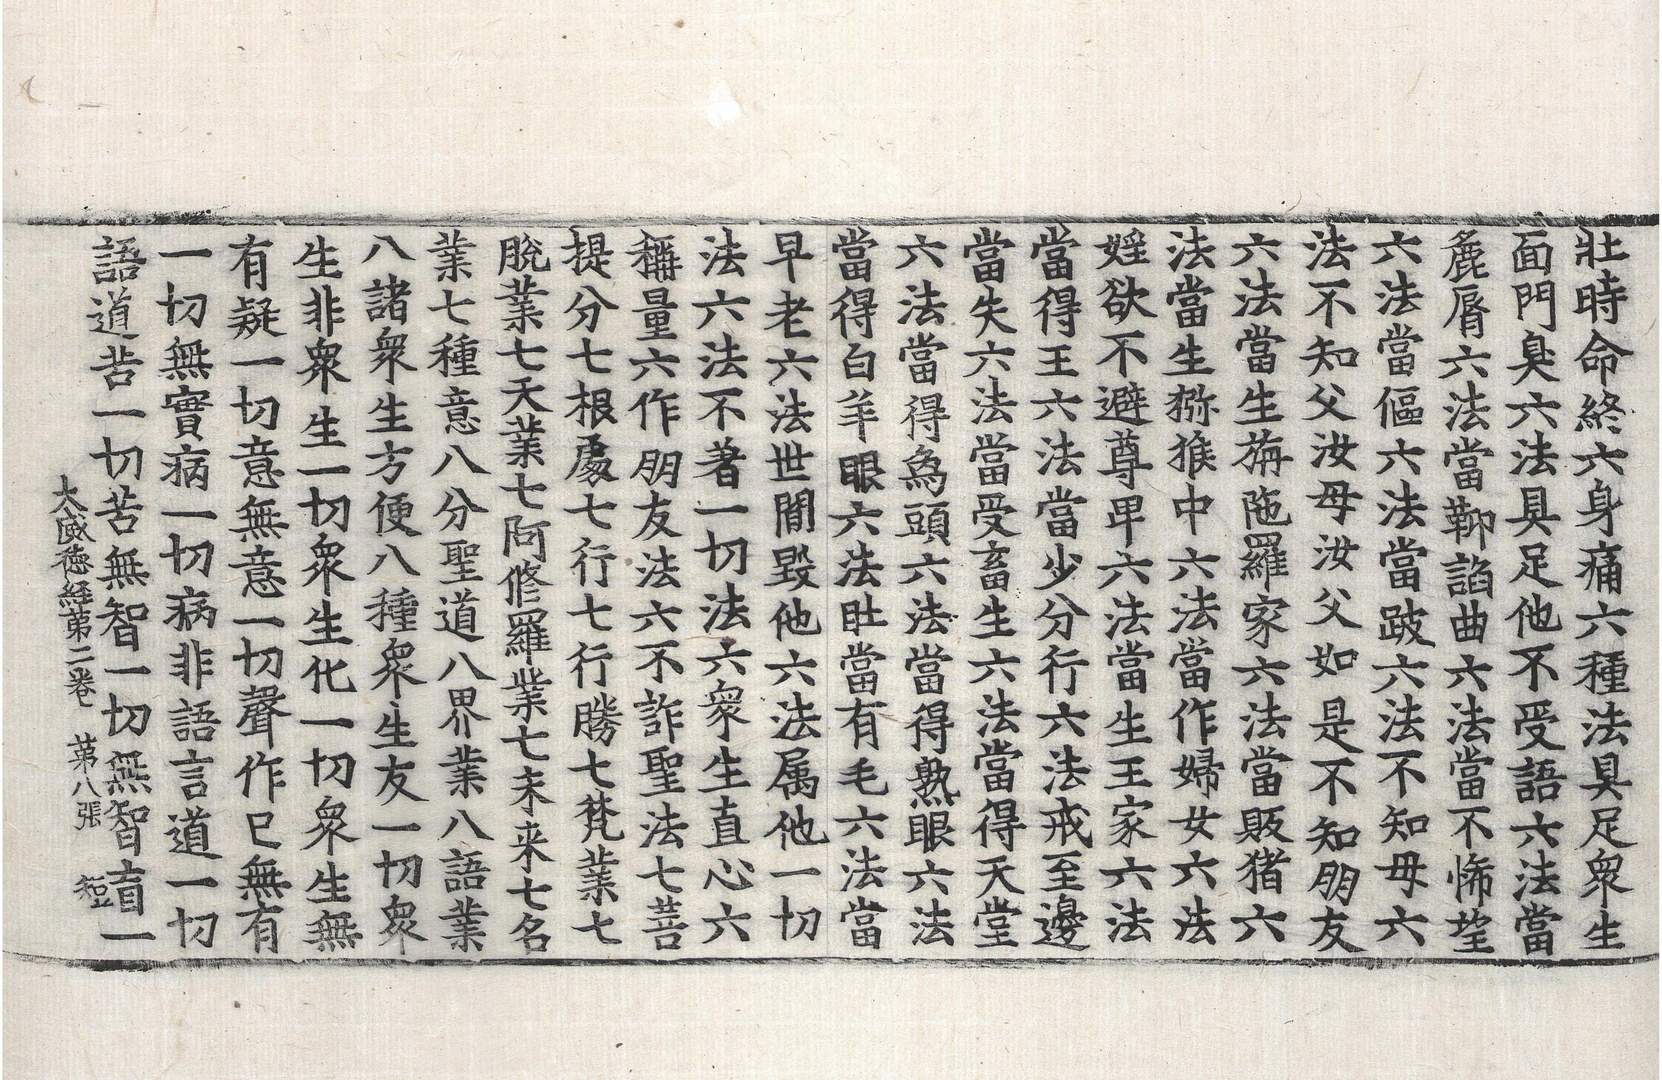 壯時命終六身痛六種法具足衆生
面門臭六法具足他不受語六法當
麁脣六法當𩊅諂曲六法當不悕望
六法當傴六法當跛六法不知母六
法不知父汝母汝父如是不知朋友
六法當生旃陁羅家六法當販猪六
法當生猕猴中六法當作婦女六法
婬欲不避尊卑六法當生王家六法
當得王六法當少分行六法戒至邊
當失六法當受畜生六法當得天堂
六法當得為頭六法當得熟眼六法
當得白羊眼六法肚當有毛六法當
早老六法世閒毀他六法属他一切
法六法不著一切法六衆生直心六
稱量六作朋友法六不詐聖法七菩
提分七根處七行七行勝七梵業七
脫業七天業七阿修羅業七未来七名
業七種意八分聖道八界業八語業
八諸衆生方便八種衆生友一切衆
生非衆生一切衆生化一切衆生無
有疑一切意無意一切聲作已無有
一切無實病一切病非語言道一切
語道苦一切苦無智一切無智盲一
大威德経第二卷 第八張